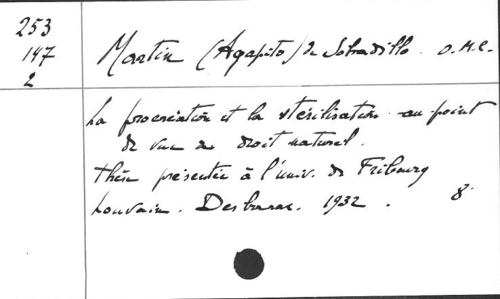 253
147
2
Martin (Agapito) de Sobradillo. O.M.C.
La procréation et la stérilisation au point
de vue du droit naturel.
Thèse présentée à l'univ. de Fribourg
Louvain. Desbarax. 1932. 8°